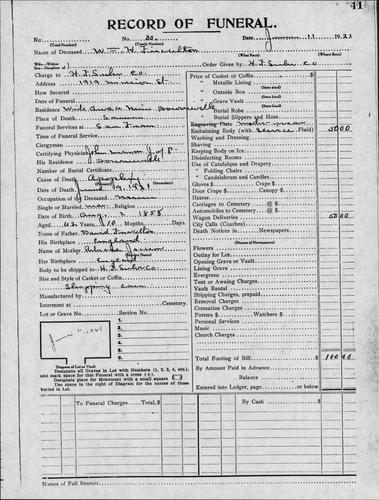 41
RECORD OF FUNERAL.
No. 20. Date, 11 1921
(Total Number) (Yearly Number)
Name of Deceased Wm H.
(What Race) (Where Born)
Wife-Widow
Son-Daughter of Order Given by H.F. Suhr Co
Charge to H F Suhr Co.
Address 1919 Mission St.
How Secured
Date of Funeral
Residence
Place of Death
Funeral Services at San Fran
Time of Funeral Service
Clergyman
Certifying Physician John J of P.
His Residence
Number of Burial Certificate
Cause of Death Apoplexy
(Primary) (Secondary)
Date of Death 9, 1921
Occupation of the Deceased
Single or Married Religion
Date of Birth Aug. 2 1858
Aged 62 Years, 10 Months, Days
Name of Father David
His Birthplace England
Name of Mother
Her Birthplace England
Body to be shipped to H.F. Suhr Co.
Size and Style of Casket or Coffin
Shipping case
Manufactured by
Interment at Cemetery.
Lot or Grave No. Section No.
1.
2.
3.
4.
5.
6.
Diagram of Lot or Vault
Designate all Graves in Lot with Numbers (1, 2, 3, 4, etc.),
and mark space for this Funeral with a cross (+).
Designate place for Monument with a small square
Use space to the right of Diagram for the names of those
buried in Lot.
Price of Casket or Coffin $
(State kind)
" Metallic Lining
(State kind)
" Outside Box
(State kind)
" Grave Vault
(State kind)
" Burial Robe
(State kind)
" Burial Slippers and Hose
Engraving Plate
Embalming Body (with Fluid) 50 00
Washing and Dressing
Shaving
Keeping Body on Ice
Disinfecting Rooms
Use of Catafalque and Drapery
" Folding Chairs
" Candelabrum and Candles
Gloves $ Crape $
Door Crape $ Canopy $
Hearse
Carriages to Cemetery @ $
Automobiles to Cemetery @ $
Wagon Deliveries 50 00
City Calls (Coaches)
Death Notices in Newspapers
(Names of Newspapers)
Flowers
Outlay for Lot
Opening Grave or Vault
Lining Grave
Evergreen
Tent or Awning Charges
Vault Rental
Shipping Charges, prepaid
Removal Charges
Cremation Charges
Porters $ Watchers $
Personal Services
Music
Church Charges
Total Footing of Bill $ 100 00
By Amount Paid in Advance
Balance
Entered into Ledger, page or below.
To Funeral Charges Total, $ By Cash $
Names of Pall Bearers